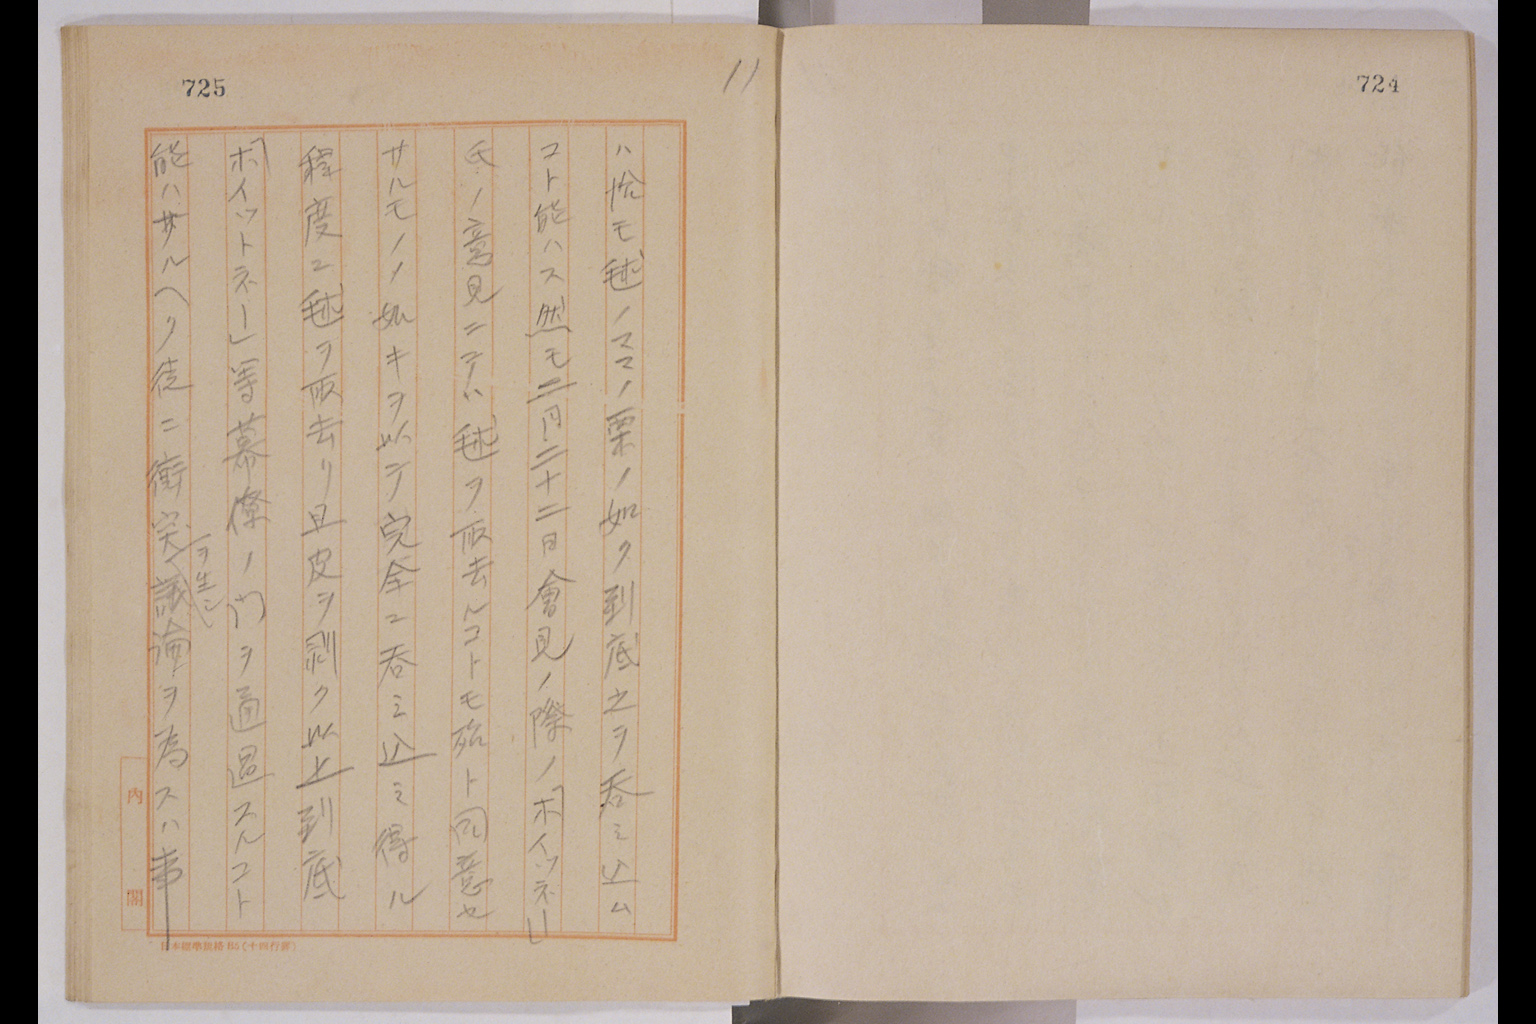 724
725
11
ハ恰モ毬ノママノ栗ノ如ク到底之ヲ呑ミ込ム
コト能ハス然モ二月二十二日會見ノ際ノ「ホイットネー」
氏ノ意見ニテハ毬ヲ取去ルコトモ殆ト同意セ
サルモノノ如キヲ以テ完全ニ呑ミ込ミ得ル
程度ニ毬ヲ取去リ且皮ヲ剥ク以上到底
「ホイットネー」等幕僚ノ門ヲ通過スルコト
能ハサルヘク徒ニ衝突ヲ生シ議論ヲ為スハ事
内閣
日本標準規格B5(十四行罫)